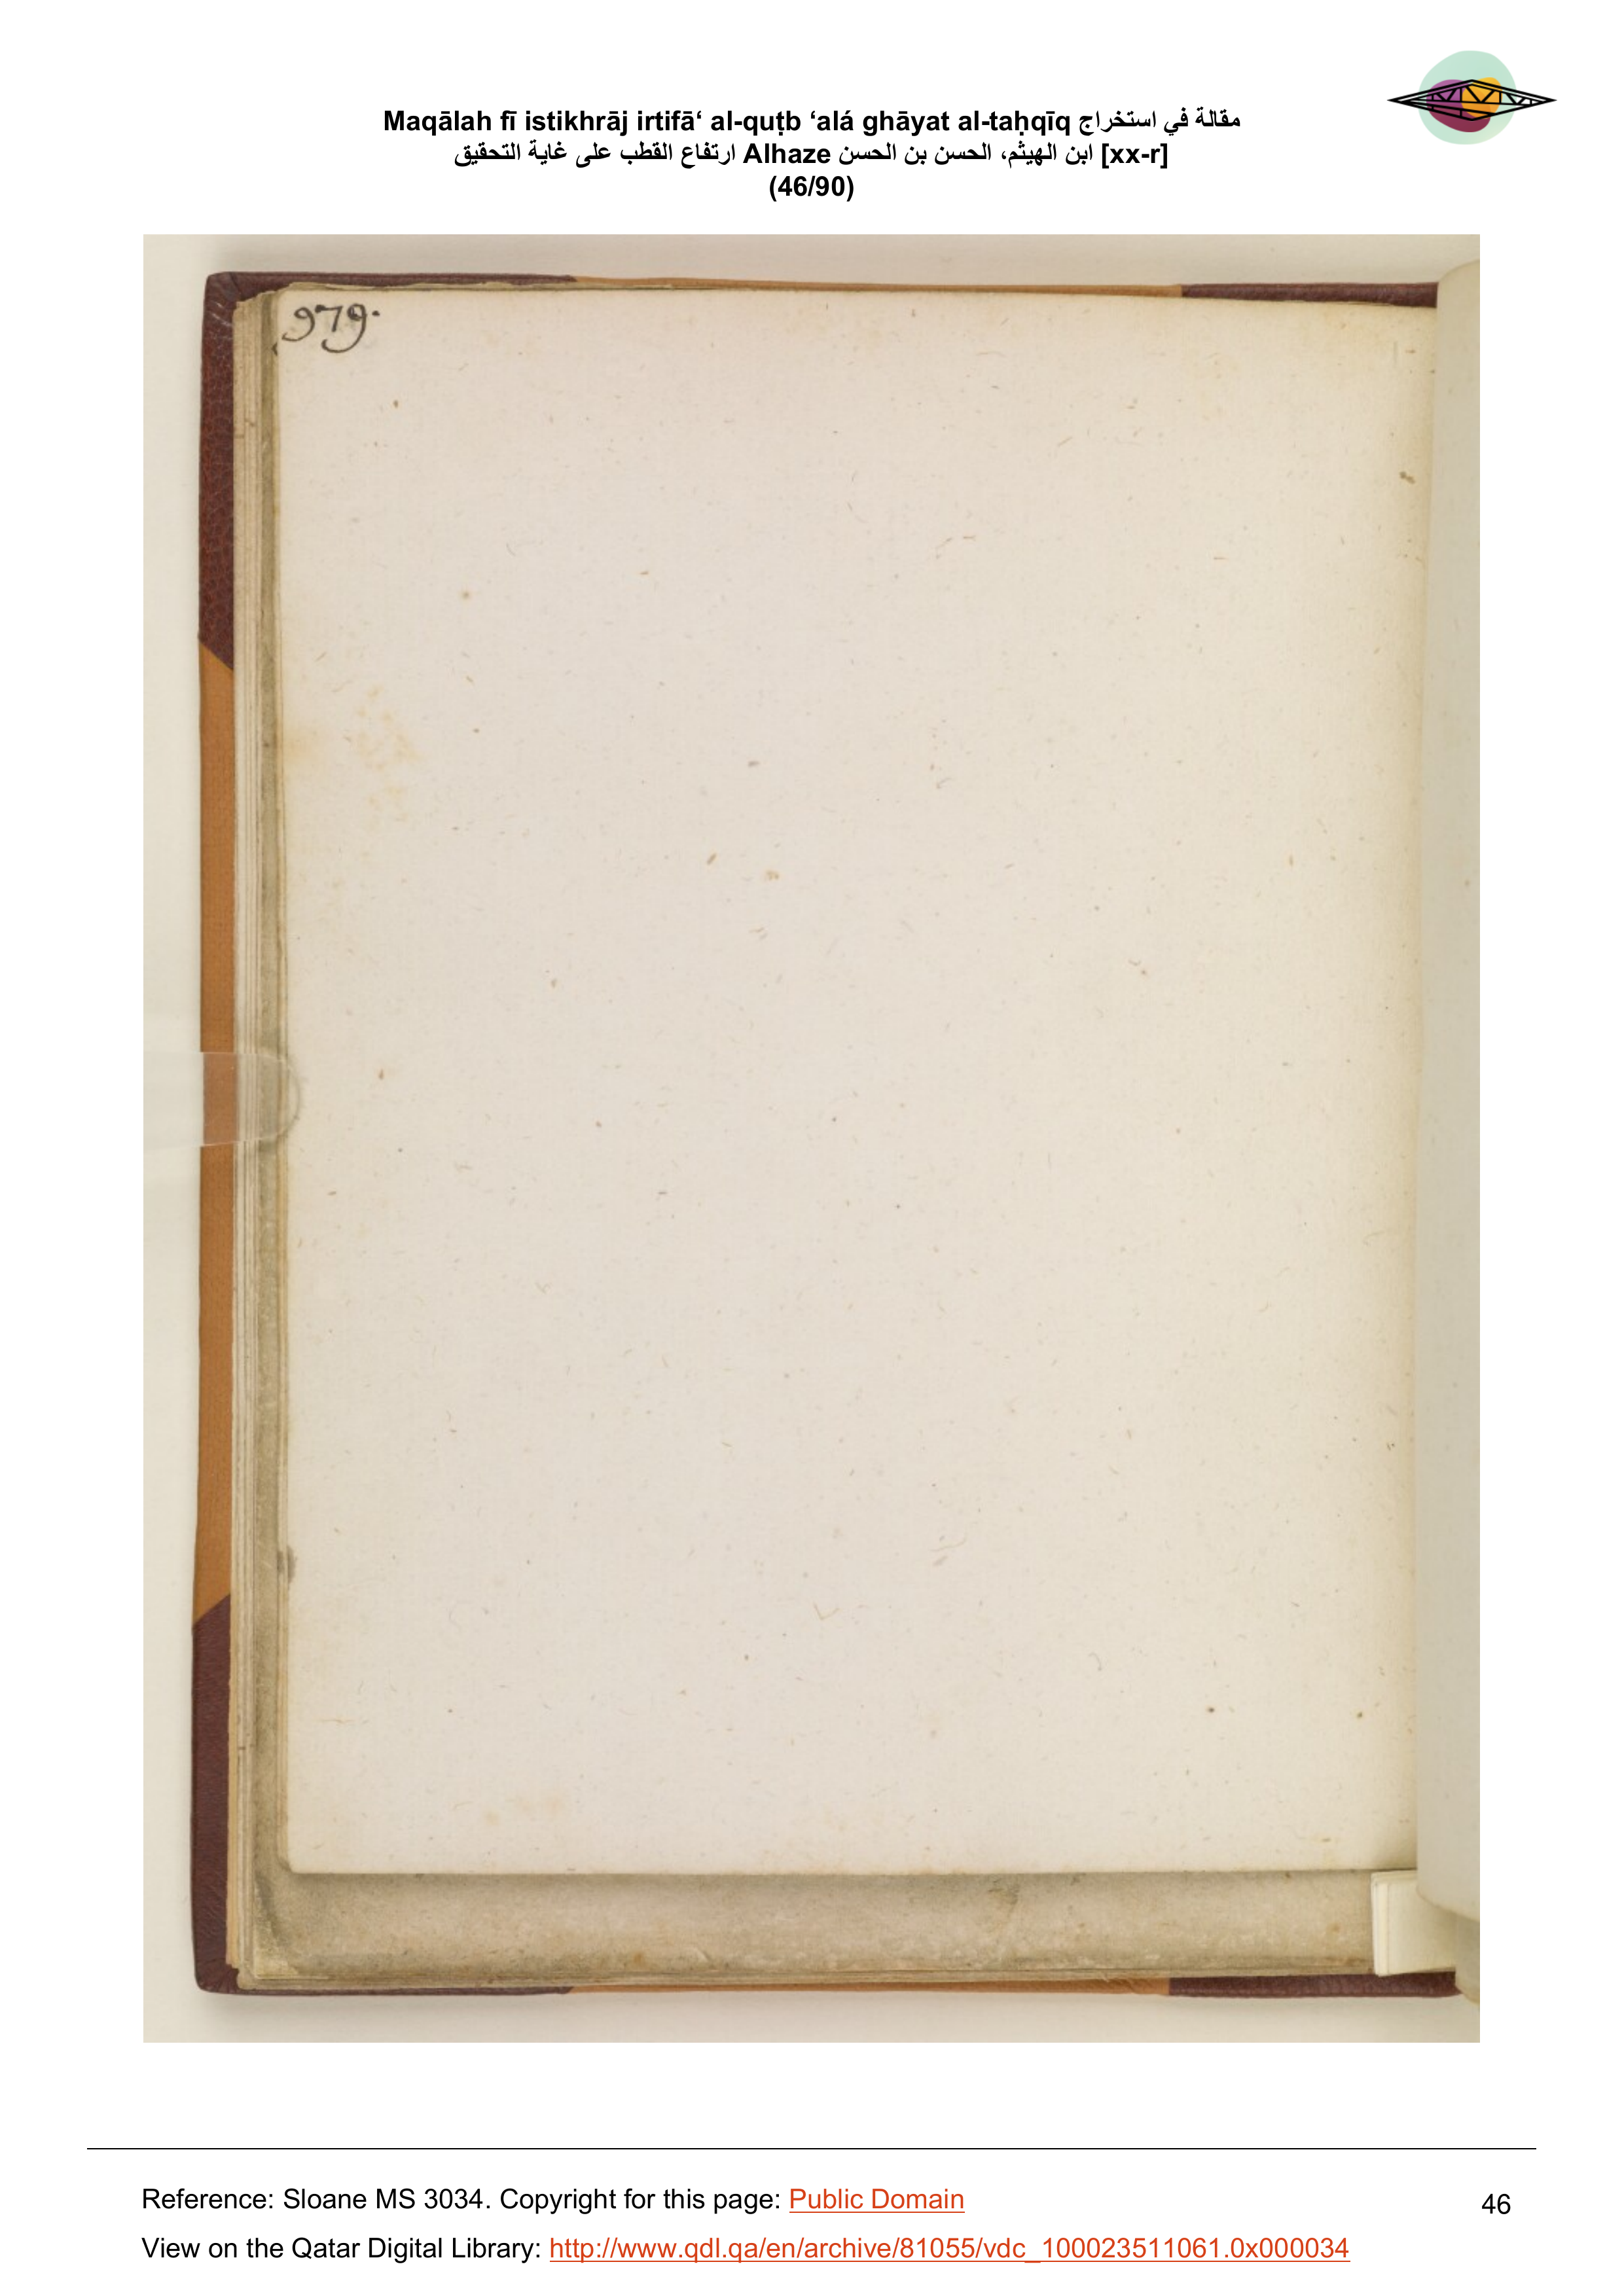 Maqālah fī istikhrāj irtifā‘ al-quṭb ‘alá ghāyat al-taḥqīq مقالة في استخراج
ارتفاع القطب على غاية التحقيق Alhaze ابن الهيثم، الحسن بن الحسن [xx-r]
(46/90)
979.
Reference: Sloane MS 3034. Copyright for this page: Public Domain
46
View on the Qatar Digital Library: http://www.qdl.qa/en/archive/81055/vdc_100023511061.0x000034